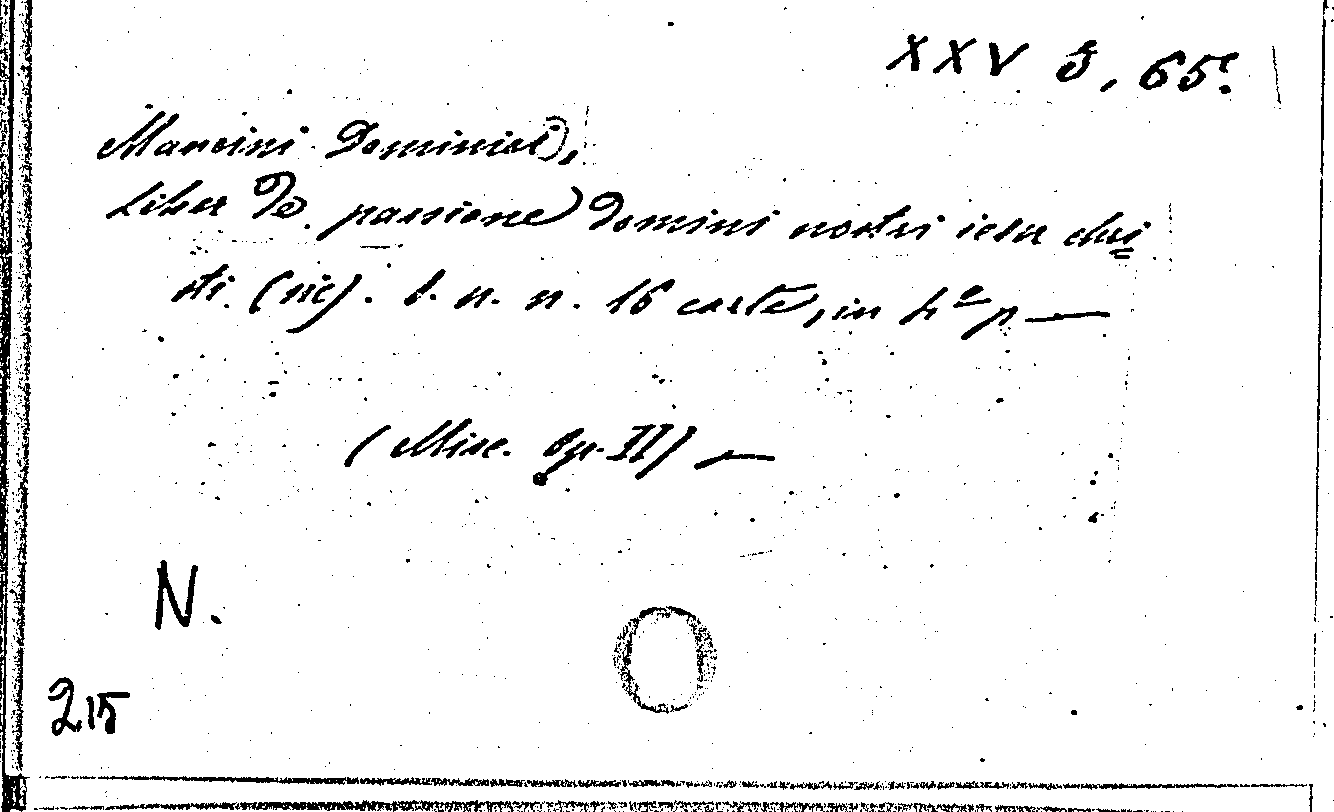 XXV G, 65.
Mancini Dominici,
Liber de passione domini nostri iesu chri=
sti (sic). l. n. n. 16 carte, in 4º p —
(Misc. Op. II) —
N.
215